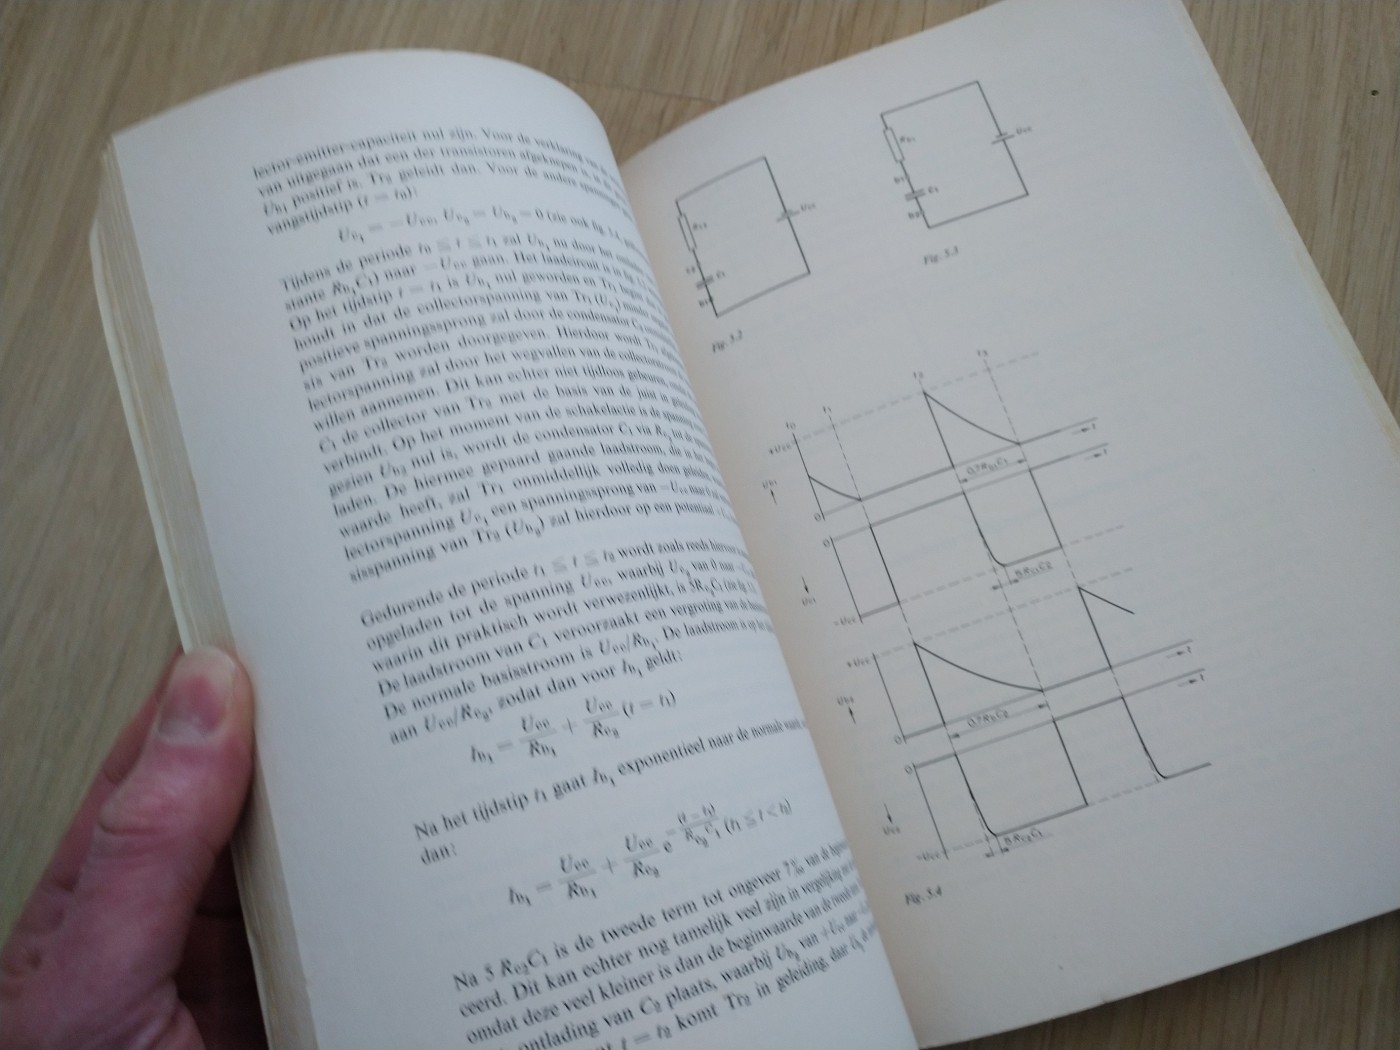 lector-emitter-capaciteit nul zijn. Voor de verklaring van de
van uitgegaan dat een der transistoren afgeknepen is,
Ub1 positief is. Tr2 geleidt dan. Voor de andere spanningen
vangstijdstip (t = t0):
Uc1 = −Ucc, Uc2 = Ub2 = 0 (zie ook fig. 5.4,
Tijdens de periode t0 ≦ t ≦ t1 zal Ub1 nu door het
stante Rb1C1) naar −Ucc gaan. Het laadcircuit is in fig.
Op het tijdstip t = t1 is Ub1 nul geworden en Tr1 begint
houdt in dat de collectorspanning van Tr1 (Uc1) minder
positieve spanningssprong zal door de condensator C2
sis van Tr2 worden doorgegeven. Hierdoor wordt Tr2
lectorspanning zal door het wegvallen van de collectorstroom
willen aannemen. Dit kan echter niet tijdloos gebeuren,
C1 de collector van Tr2 met de basis van de juist in
verbindt. Op het moment van de schakelactie is de spanning
gezien Ub2 nul is, wordt de condensator C1 via Rc2 tot de
laden. De hiermee gepaard gaande laadstroom, die in het
waarde heeft, zal Tr1 onmiddellijk volledig doen geleiden
lectorspanning Uc1 een spanningssprong van −Ucc naar 0
sisspanning van Tr2 (Ub2) zal hierdoor op een potentiaal
Gedurende de periode t1 ≦ t ≦ t2 wordt zoals reeds hiervoor
opgeladen tot de spanning Ucc, waarbij Uc2 van 0 naar
waarin dit praktisch wordt verwezenlijkt, is 5Rc2C1 (zie fig.
De laadstroom van C1 veroorzaakt een vergroting van de
De normale basisstroom is Ucc/Rb1. De laadstroom is op het
aan Ucc/Rc2, zodat dan voor Ib1 geldt:
Ib1 = Ucc/Rb1 + Ucc/Rc2 (t = t1)
Na het tijdstip t1 gaat Ib1 exponentieel naar de normale waarde
dan:
Ib1 = Ucc/Rb1 + Ucc/Rc2 e −(t − t1)/Rc2C1 (t1 ≦ t < t2)
Na 5 Rc2C1 is de tweede term tot ongeveer 7‰ van de
ceerd. Dit kan echter nog tamelijk veel zijn in vergelijking
omdat deze veel kleiner is dan de beginwaarde van de
ontlading van C2 plaats, waarbij Ub2 van +Ucc naar
t = t2 komt Tr2 in geleiding, daar
C1
Ucc
Fig. 5.2
Rb1
C1
Ucc
Fig. 5.3
t0
t1
t2
t3
+Ucc
Ub1
0
0,7Rb1C1
t
t
0
Uc1
−Ucc
5Rc1C2
+Ucc
Ub2
0
0,7Rb2C2
t
t
0
Uc2
−Ucc
5Rc2C1
Fig. 5.4